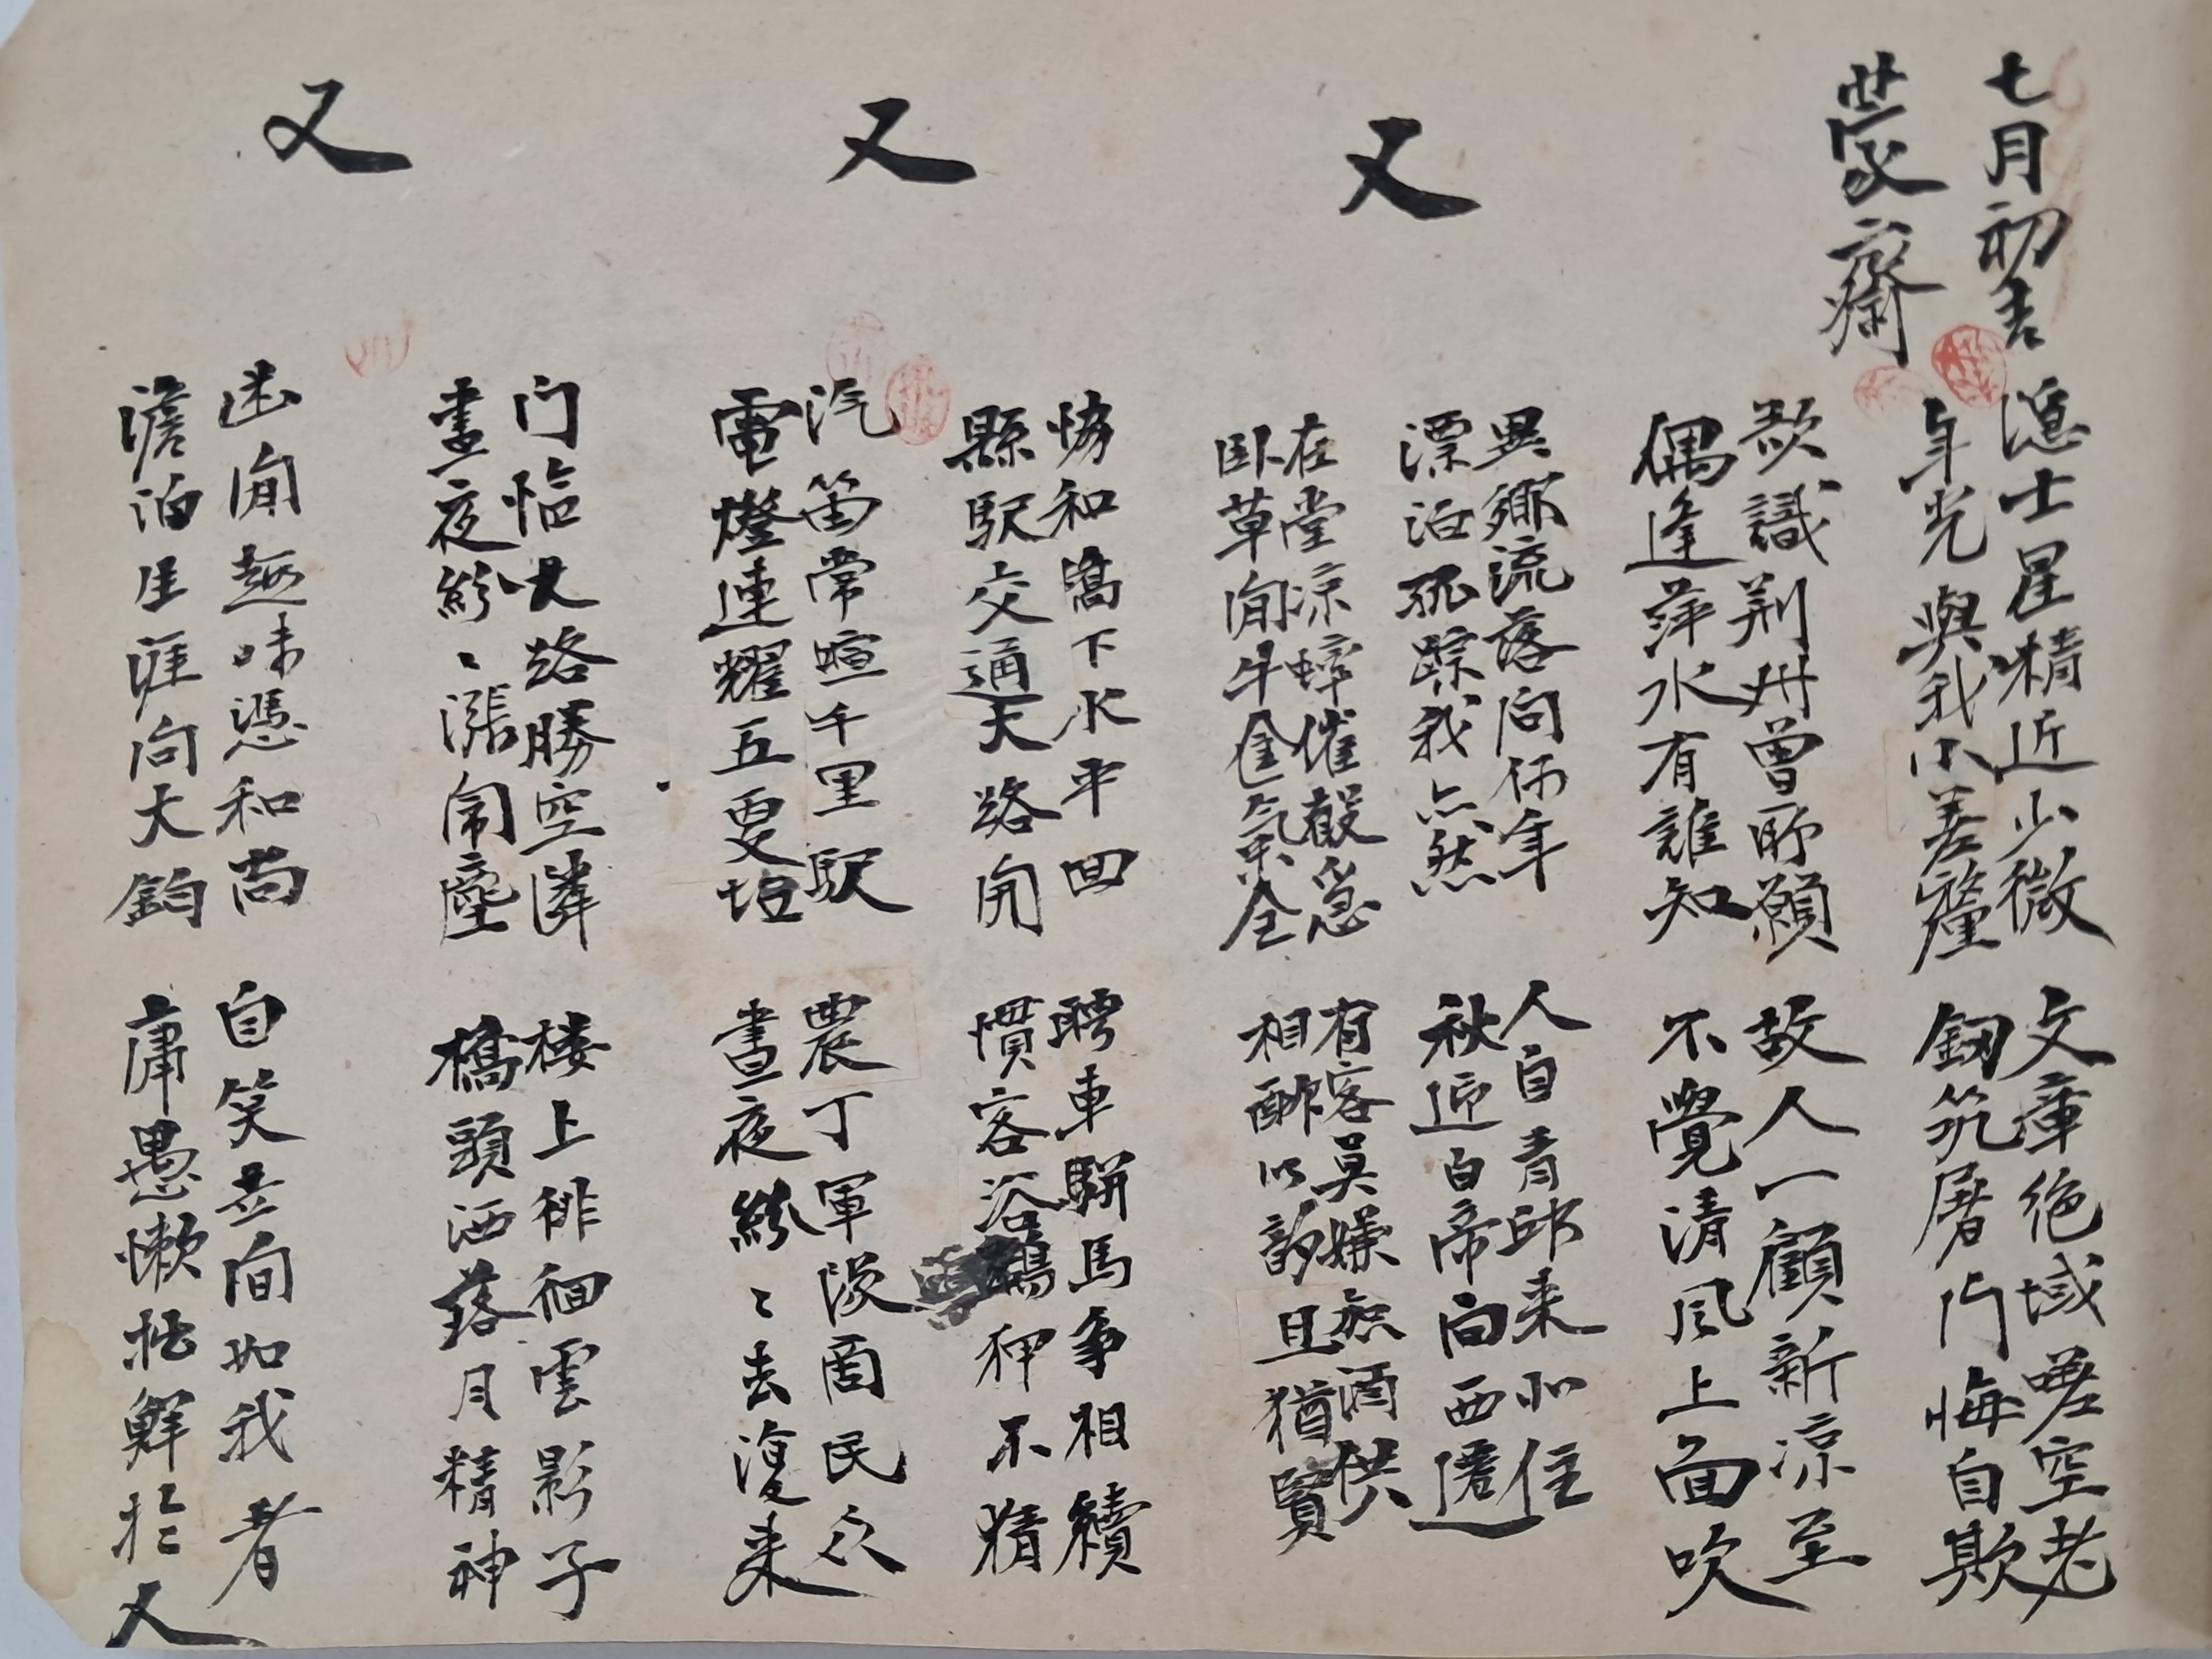 七月初吉
蒙齋
隱士星精近少微 文章絶域嗟空老
年光與我不差釐 釼筑屠門悔自欺
欲識荆州曾所願 故人一顧新凉至
偶逢萍水有誰知 不覺清風上面吹
又
異鄉流落問何年 人自青邱来北住
漂泊孤踪我亦然 秋近白帝向西遷
在堂凉蟀催殺急 有客莫嫌無酒供
卧草閒牛氣全 相酬以詩且猶賢
又
協和橋下水平回 聘車騈馬爭相續
縣駅交通大路開 慣客浴鷗狎不猜
汽笛常喧千里駅 農丁軍隊商民众
電燈連耀五更坮 晝夜紛〻去復来
又
门臨大路勝空隣 楼上徘徊雲影子
晝夜紛〻漲閙塵 橋頭洒落月精神
幽閒趣味憑和尚 自笑世间如我者
澹泊生涯向大鈞 庸愚懶拙鮮於人